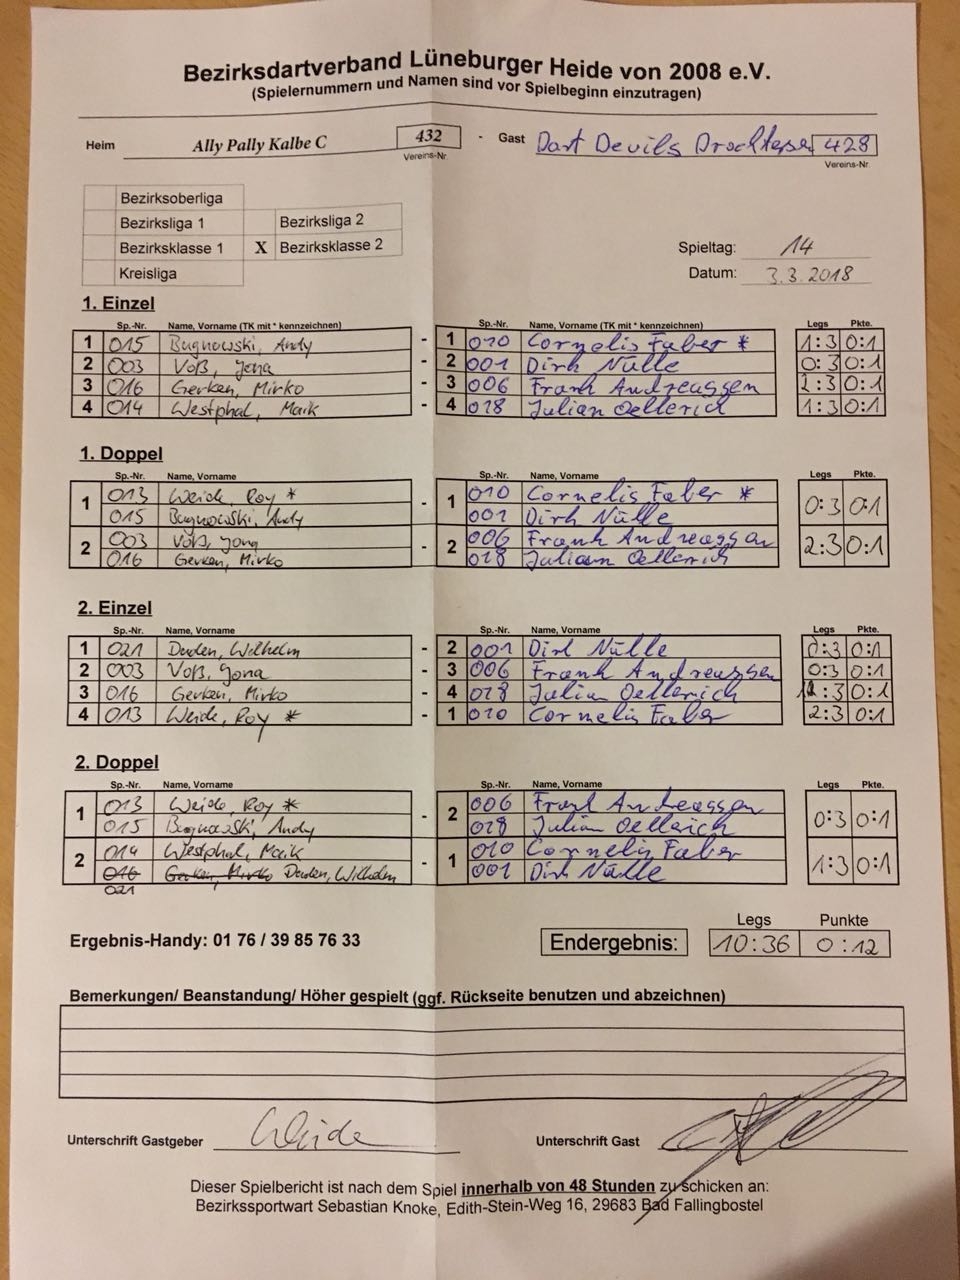 Bezirksdartverband Lüneburger Heide von 2008 e.V.
(Spielernummern und Namen sind vor Spielbeginn einzutragen)
Heim Ally Pally Kalbe C 432 - Gast Dart Devils Drochterse 428
Vereins-Nr. Vereins-Nr.
Bezirksoberliga
Bezirksliga 1 Bezirksliga 2
Bezirksklasse 1 X Bezirksklasse 2
Kreisliga
Spieltag: 14
Datum: 3.3.2018
1. Einzel
Sp.-Nr. Name, Vorname (TK mit * kennzeichnen) Sp.-Nr. Name, Vorname (TK mit * kennzeichnen) Legs Pkte.
1 015 Bugnowski, Andy - 1 010 Cornelis Faber * 1:3 0:1
2 003 Voß, Jona - 2 001 Dirk Nülle 0:3 0:1
3 016 Gerken, Mirko - 3 006 Frank Andreassen 2:3 0:1
4 014 Westphal, Maik - 4 018 Julian Oellerich 1:3 0:1
1. Doppel
Sp.-Nr. Name, Vorname Sp.-Nr. Name, Vorname Legs Pkte.
1 013 Weide, Roy * - 1 010 Cornelis Faber * 0:3 0:1
015 Bugnowski, Andy 001 Dirk Nülle
2 003 Voß, Jona - 2 006 Frank Andreassen 2:3 0:1
016 Gerken, Mirko 018 Julian Oellerich
2. Einzel
Sp.-Nr. Name, Vorname Sp.-Nr. Name, Vorname Legs Pkte.
1 021 Duden, Wilhelm - 2 001 Dirk Nülle 0:3 0:1
2 003 Voß, Jona - 3 006 Frank Andreassen 0:3 0:1
3 016 Gerken, Mirko - 4 018 Julian Oellerich 1:3 0:1
4 013 Weide, Roy * - 1 010 Cornelis Faber 2:3 0:1
2. Doppel
Sp.-Nr. Name, Vorname Sp.-Nr. Name, Vorname Legs Pkte.
1 013 Weide, Roy * - 2 006 Frank Andreassen 0:3 0:1
015 Bugnowski, Andy 018 Julian Oellerich
2 014 Westphal, Maik - 1 010 Cornelis Faber 1:3 0:1
016 Gerken, Mirko Duden, Wilhelm 001 Dirk Nülle
021
Legs Punkte
Ergebnis-Handy: 01 76 / 39 85 76 33 Endergebnis: 10:36 0:12
Bemerkungen/ Beanstandung/ Höher gespielt (ggf. Rückseite benutzen und abzeichnen)
Unterschrift Gastgeber Weide Unterschrift Gast
Dieser Spielbericht ist nach dem Spiel innerhalb von 48 Stunden zu schicken an:
Bezirkssportwart Sebastian Knoke, Edith-Stein-Weg 16, 29683 Bad Fallingbostel